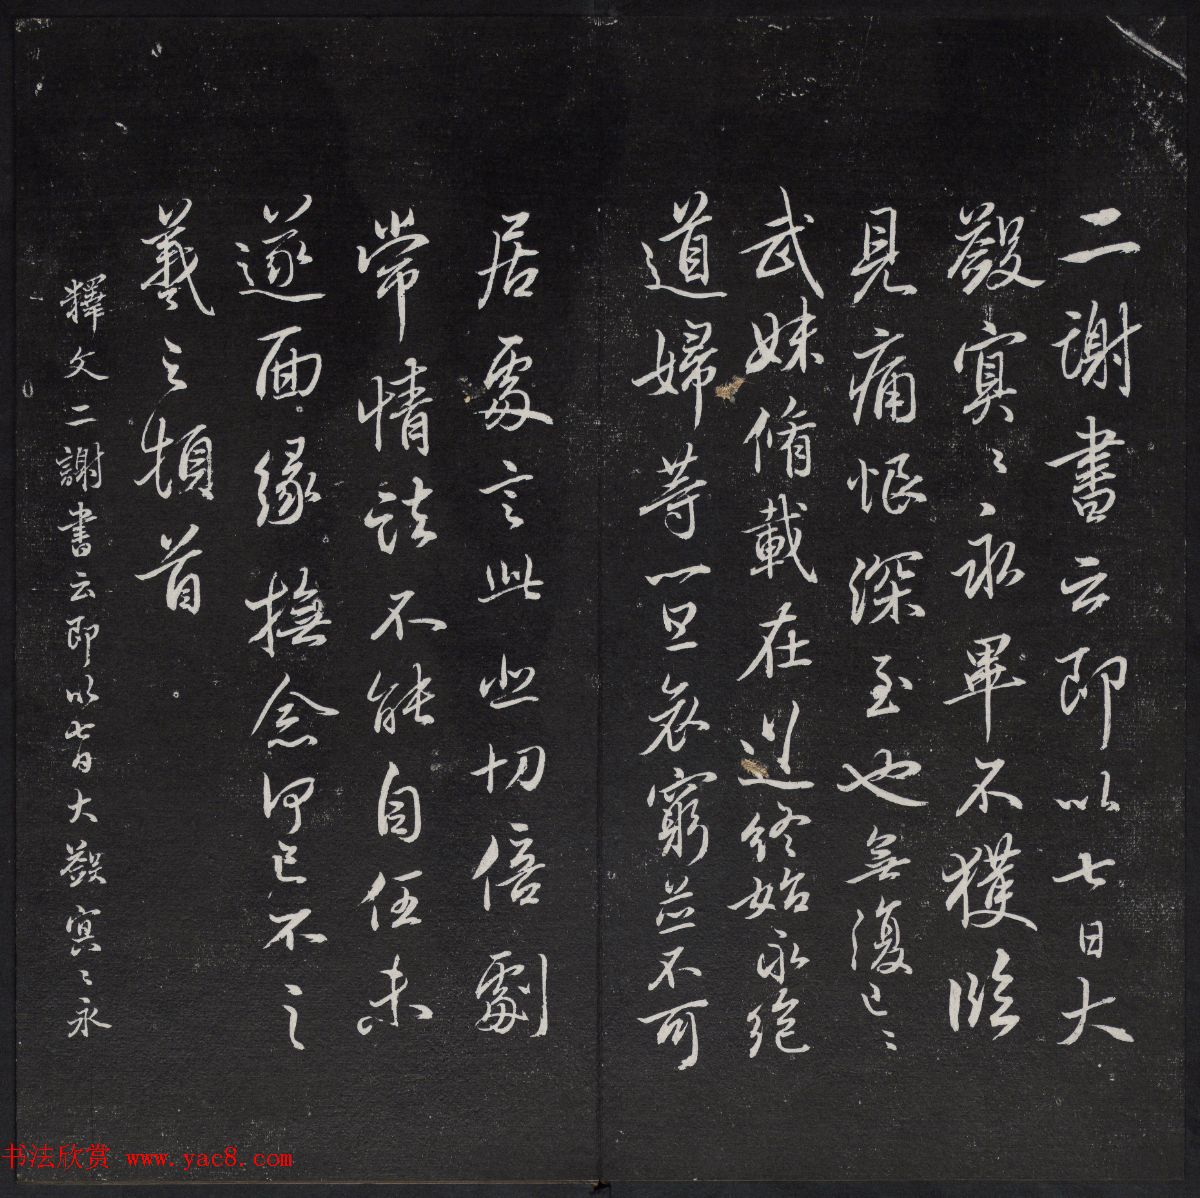 二謝書云即以七日大
殮冥〻永畢不獲臨
見痛恨深至也無復已〻
武妹脩載在道終始永絕
道婦等一旦哀窮並不可
居處言此悲切倍劇
常情諸不能自任未
遂面緣撫念何已不〻
羲之頓首
釋文二謝書云即以七日大殮冥〻永
书法欣赏 www.yac8.com